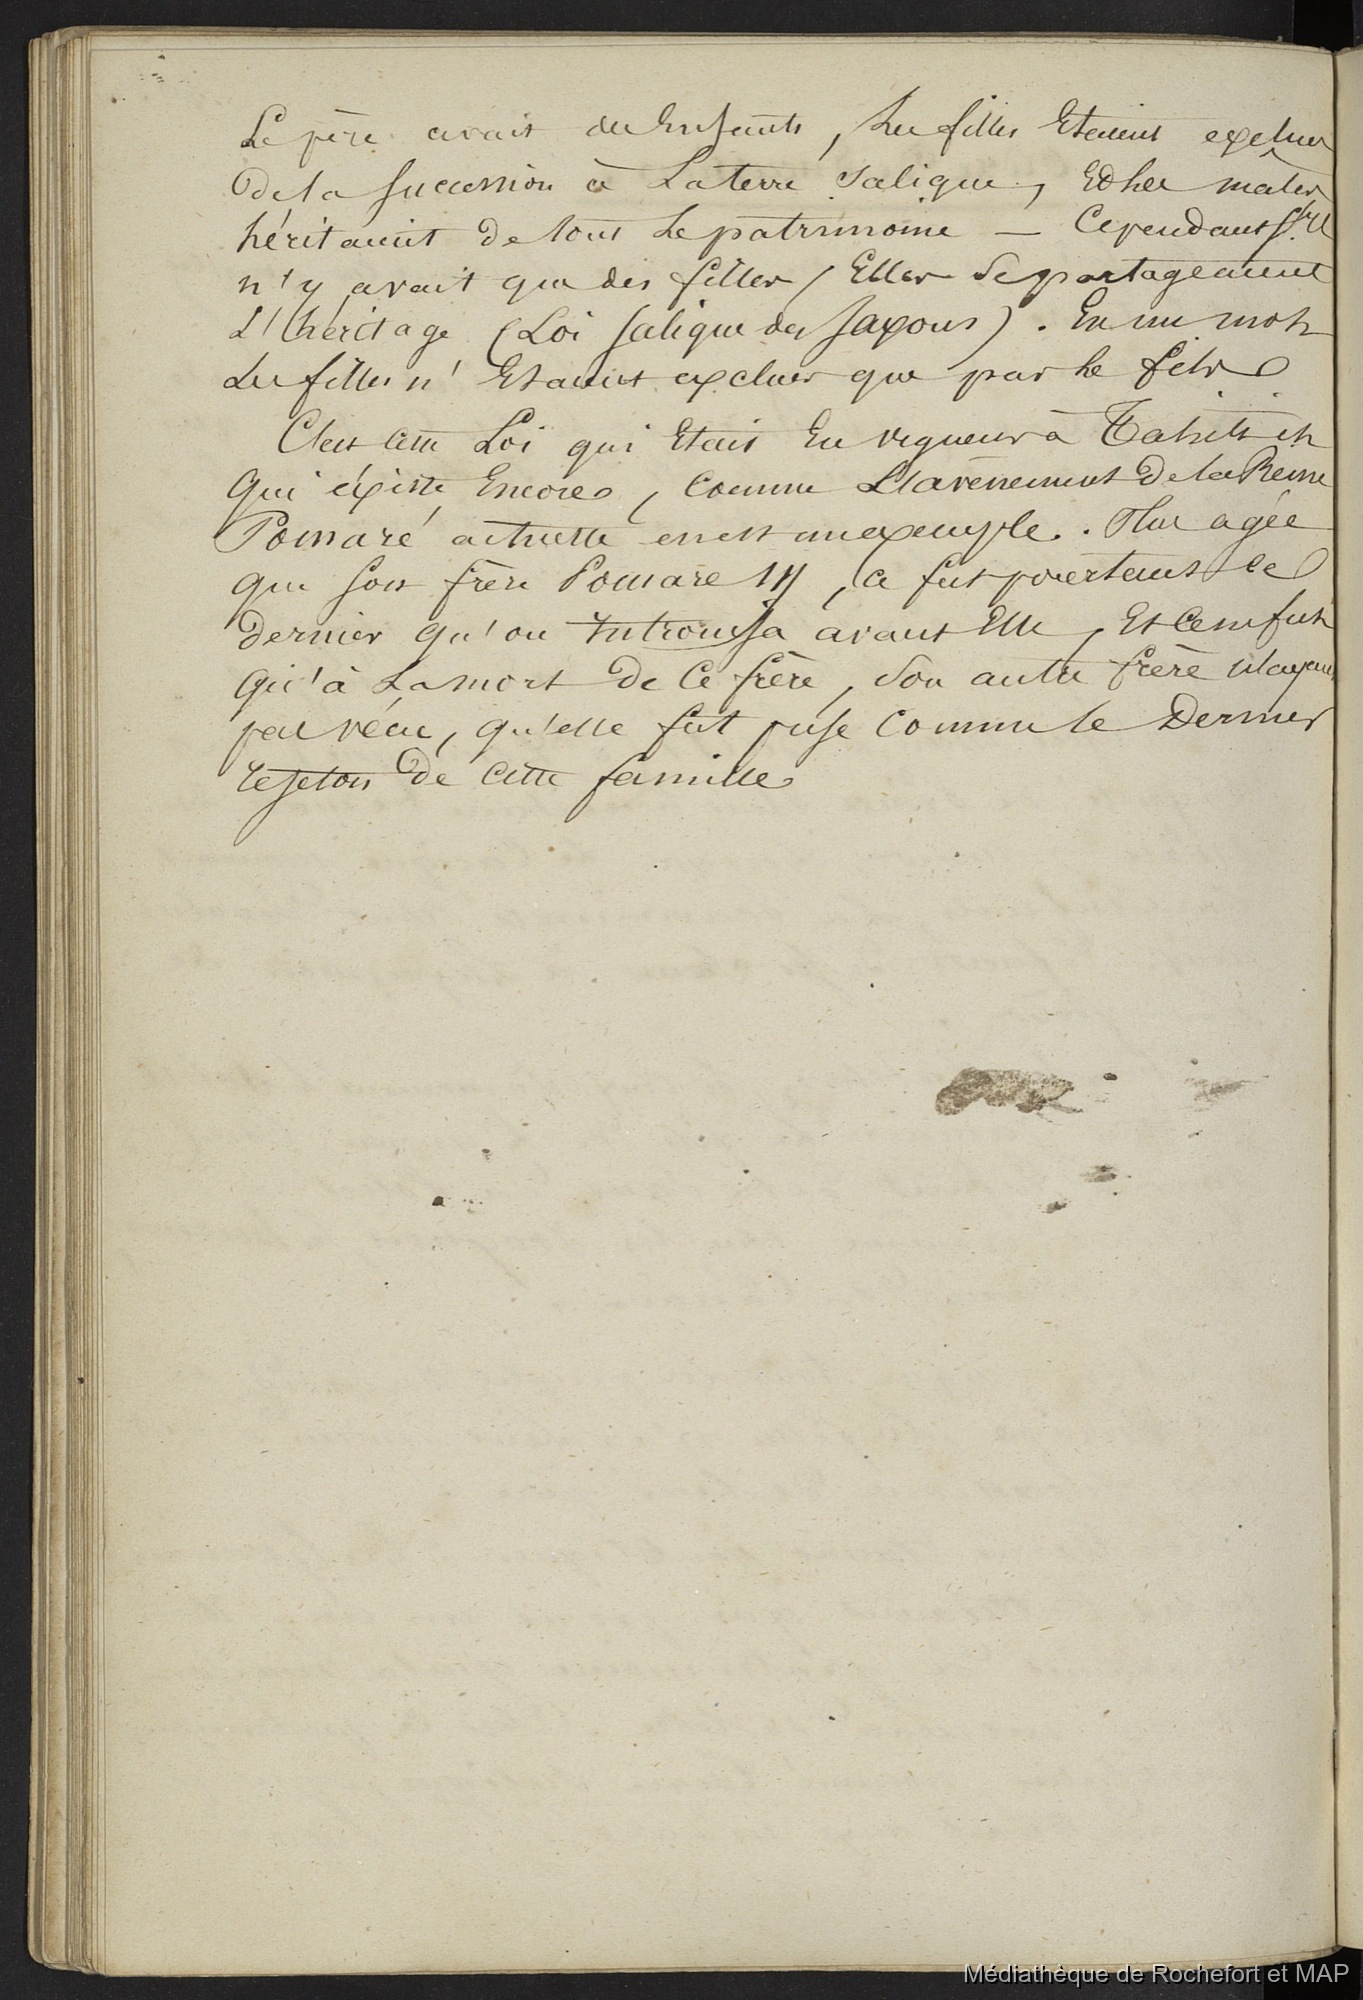 Le père avait des Enfants, les filles Etaient exclues
de la succession à La terre Salique, Et les mâles
héritaient de tout le patrimoine — Cependant s'il
n'y avait que des filles, Elles Se partageaient
L'héritage (Loi Salique des Saxons). En un mot
Les filles n'Etaient exclues que par le fils
C'est cette Loi qui Etait En vigueur à Tahiti et
Qui éxiste Encore, Comme L'avènement De la Reine
Pomaré actuelle en est un exemple. Plus agée
que son frère Pomare III, ce fut pourtant ce
dernier qu'on Intronisa avant Elle, Et ce ne fut
qu'à La mort de ce frère, Son autre frère n'ayant
pas vécu, qu'elle fut prise comme le Dernier
rejeton de cette famille
Médiathèque de Rochefort et MAP